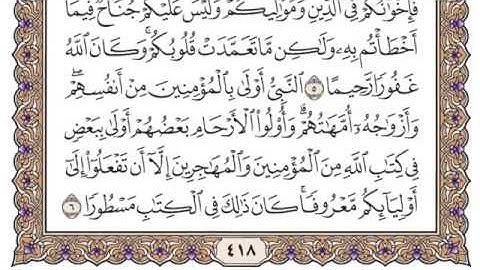 فَإِخْوَٰنُكُمْ فِي ٱلدِّينِ وَمَوَٰلِيكُمْ وَلَيْسَ عَلَيْكُمْ جُنَاحٌ فِيمَآ
أَخْطَأْتُم بِهِۦ وَلَٰكِن مَّا تَعَمَّدَتْ قُلُوبُكُمْ ۚ وَكَانَ ٱللَّهُ
غَفُورًا رَّحِيمًا ٥ ٱلنَّبِيُّ أَوْلَىٰ بِٱلْمُؤْمِنِينَ مِنْ أَنفُسِهِمْ ۖ
وَأَزْوَٰجُهُۥٓ أُمَّهَٰتُهُمْ ۗ وَأُو۟لُوا۟ ٱلْأَرْحَامِ بَعْضُهُمْ أَوْلَىٰ بِبَعْضٍ
فِي كِتَٰبِ ٱللَّهِ مِنَ ٱلْمُؤْمِنِينَ وَٱلْمُهَٰجِرِينَ إِلَّآ أَن تَفْعَلُوٓا۟ إِلَىٰٓ
أَوْلِيَآئِكُم مَّعْرُوفًا ۚ كَانَ ذَٰلِكَ فِي ٱلْكِتَٰبِ مَسْطُورًا ٦
٤١٨